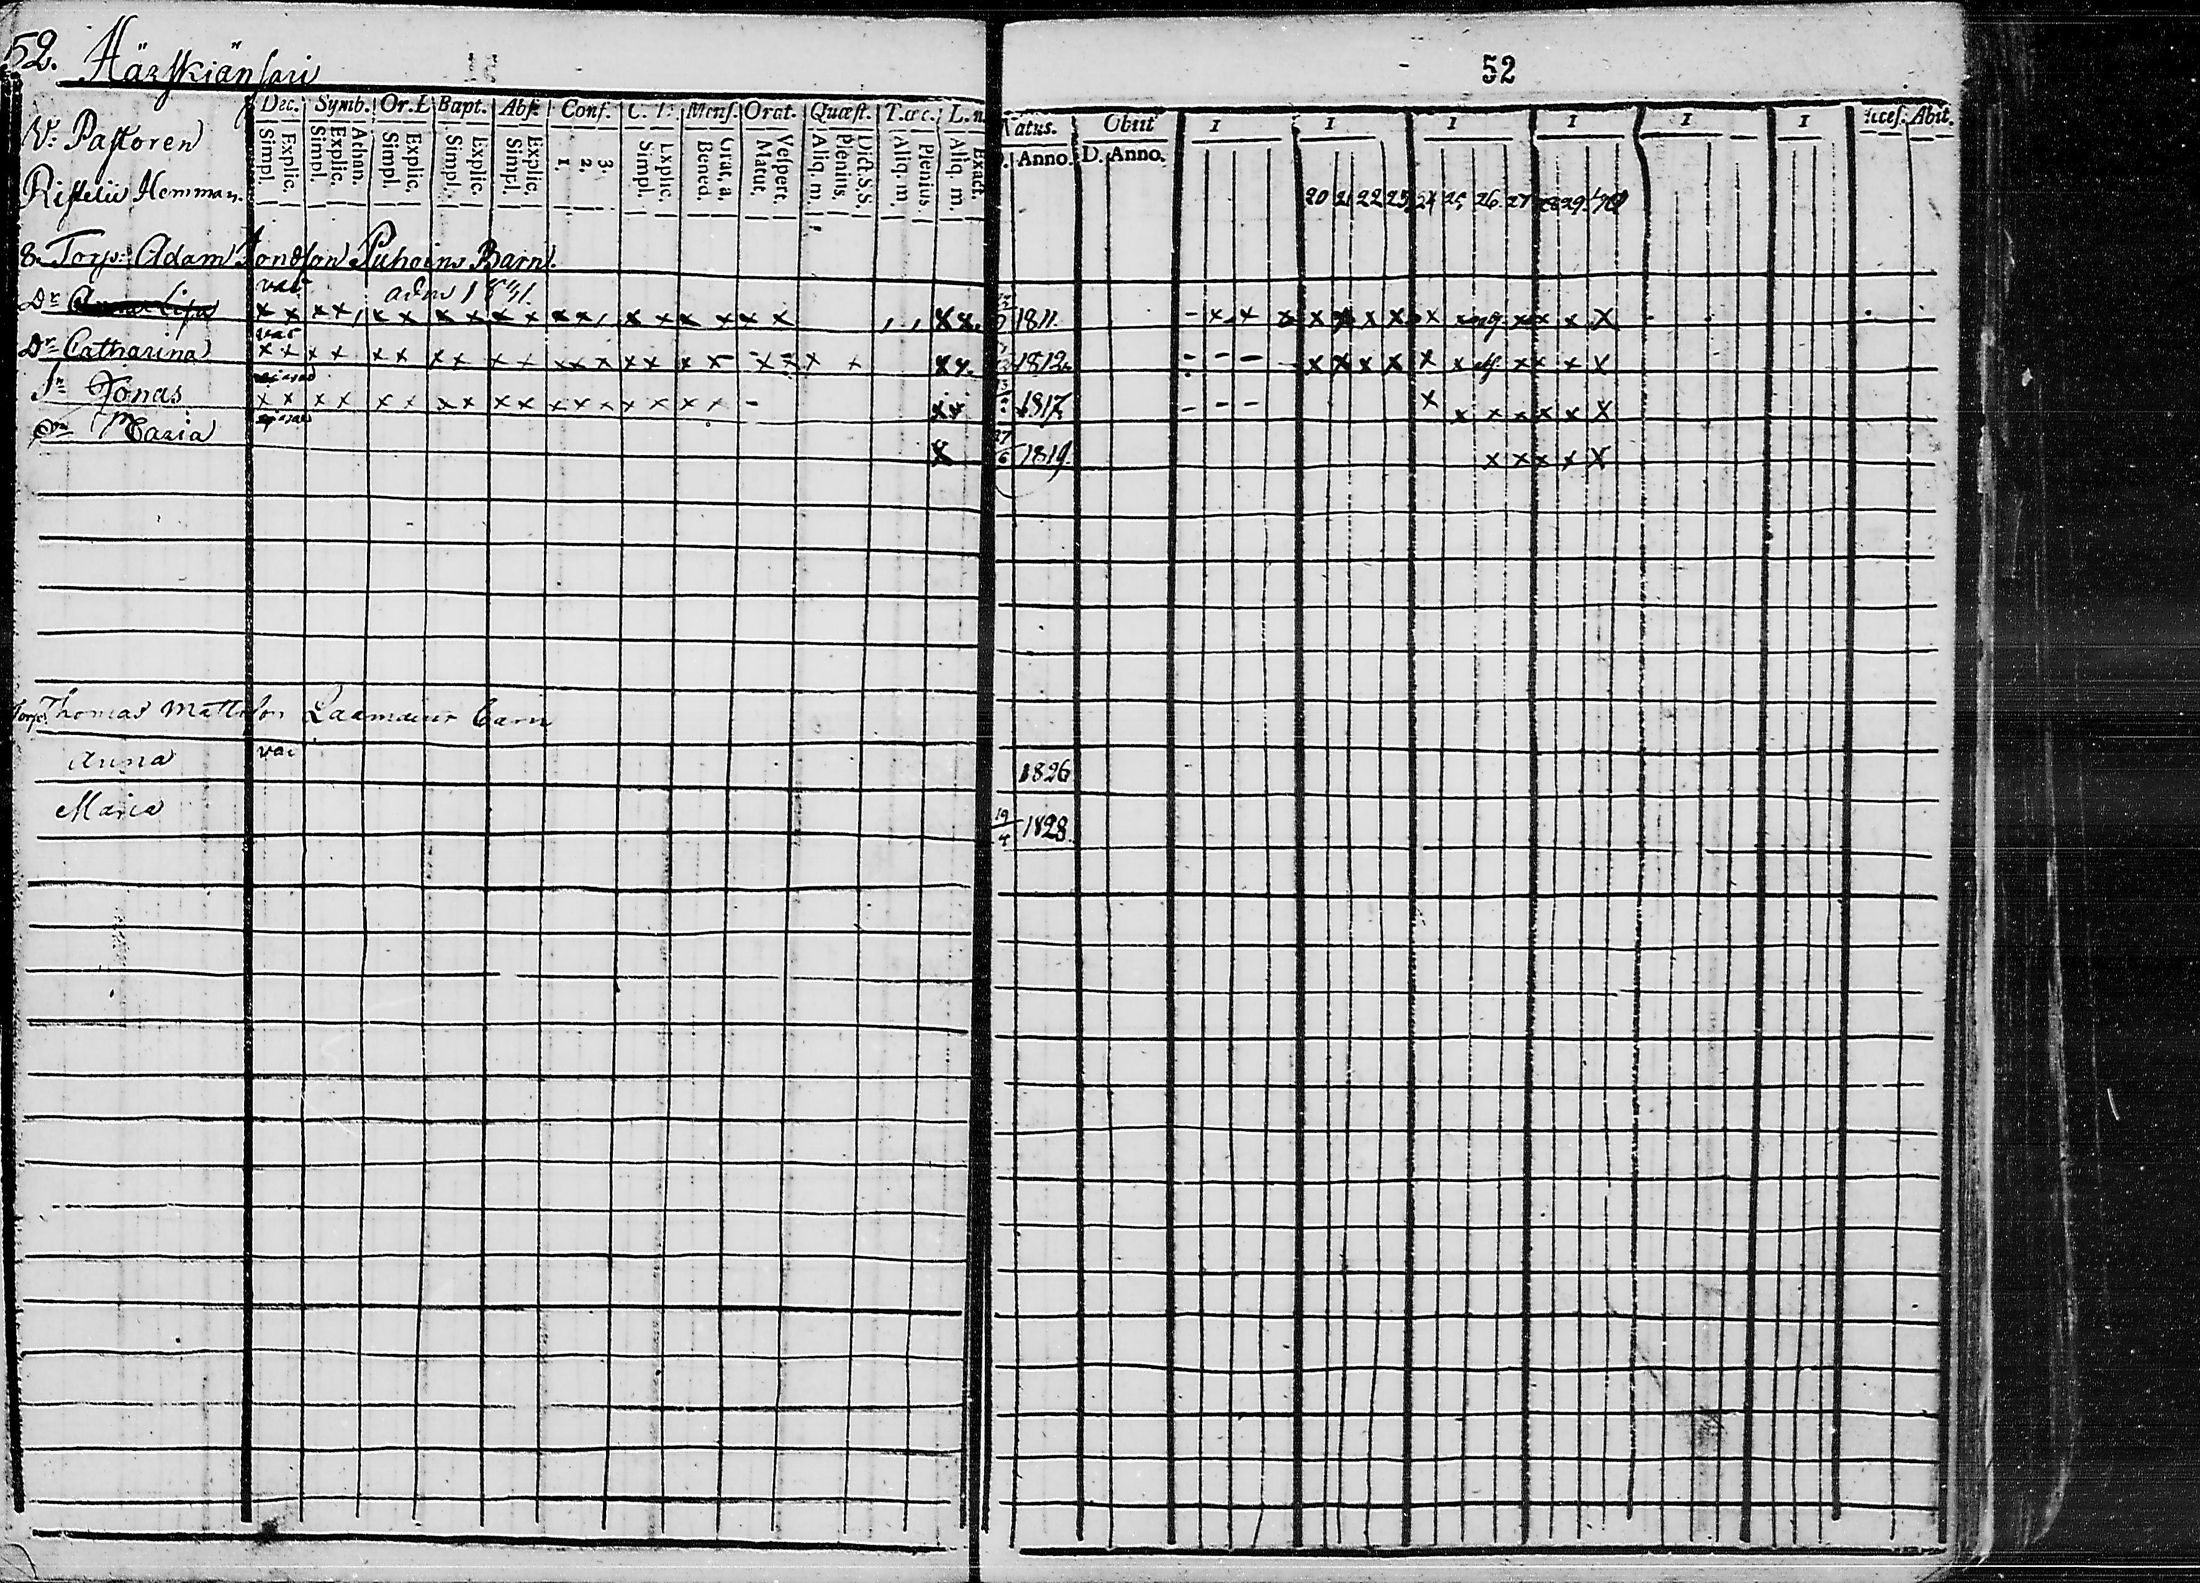 52. Härskiänsari
52
V. Pastoren
Ristelii Hemman.
Dec. Symb. Or. D Bapt. Abs. Conf. C. D: Mens. Orat. Quæst. T.œc. L. n.
Simpl. Explic. Simpl. Explic. Athan. Simpl. Explic. Simpl. Explic. Simpl. Explic. 1. 2. 3. Simpl. Explic. Bened. Grat. a. Matut. Vespert. Aliq. m. Plenius. Dict. S.S. Aliq. m Plenius. Aliq. m. Exact.
Natus. Obiit 1 1 1 1 1 1 Acces. Abit.
D. Anno. D. Anno.
20 21 22 23 24 25 26 27 28 29
8. Torp: Adam Jondson Puhoins Barn.
vac
Dr x x x x , x x x x x x x x , x x x x x x , , x x 1811. - x x x x x x x x x x x x x
vac
Dr Catharina x x x x x x x x x x x x x x x x - x x x x x x 1812. - - - x x x x x x x x x x x
Sn Jonas x x x x x x x x x x x x x x x x x - x x 1817. - - - x x x x x x x
Maria x 27/6 1819. x x x x x
Torp: Thomas Mattsson Laamains barn
Anna vac 1826
Maria 19/4 1828.